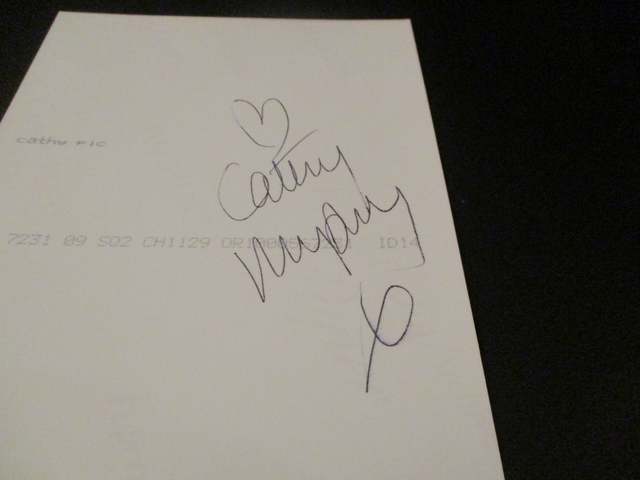 cathy Pic
Cathy
Murphy
x
7231 09 SQ2 CH1129 ID14